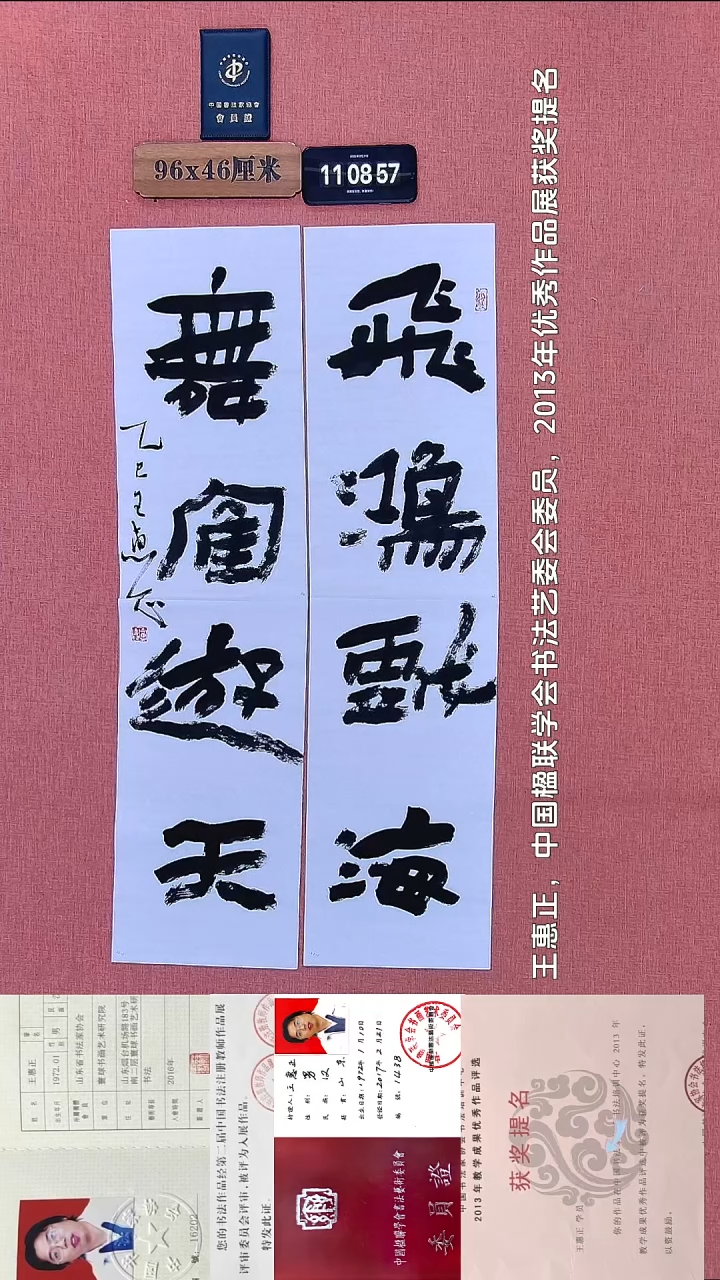 中国书法家协会
會員證
96x46厘米
11 08 57
飛鴻戲海
舞鶴遊天
乙巳王惠正
王惠正，中国楹联学会书法艺委会委员，2013年优秀作品展获奖提名
王惠正
1972.01
男
山东省书法家协会
寰球书画艺术研究院
山东烟台机场路183号
南二层寰球书画艺术研
书法
2016年
您的书法作品经第二届中国书法注册教师作品展
评审委员会评审，被评为入展作品。
特发此证。
持证人：王惠正
性别：男
民族：汉
籍贯：山东
出生日期：1972年1月10日
发证日期：2017年2月21日
编号：1438
中国楹聯學會書法藝術委員會
委員證
2013年教学成果优秀作品评选
获奖提名
王惠正 学员
教学成果优秀作品评选中被评为获奖提名，特发此证，
以资鼓励。